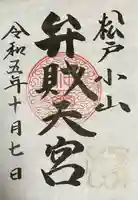 松戸小山
弁賊天宮
令和五年十月七日